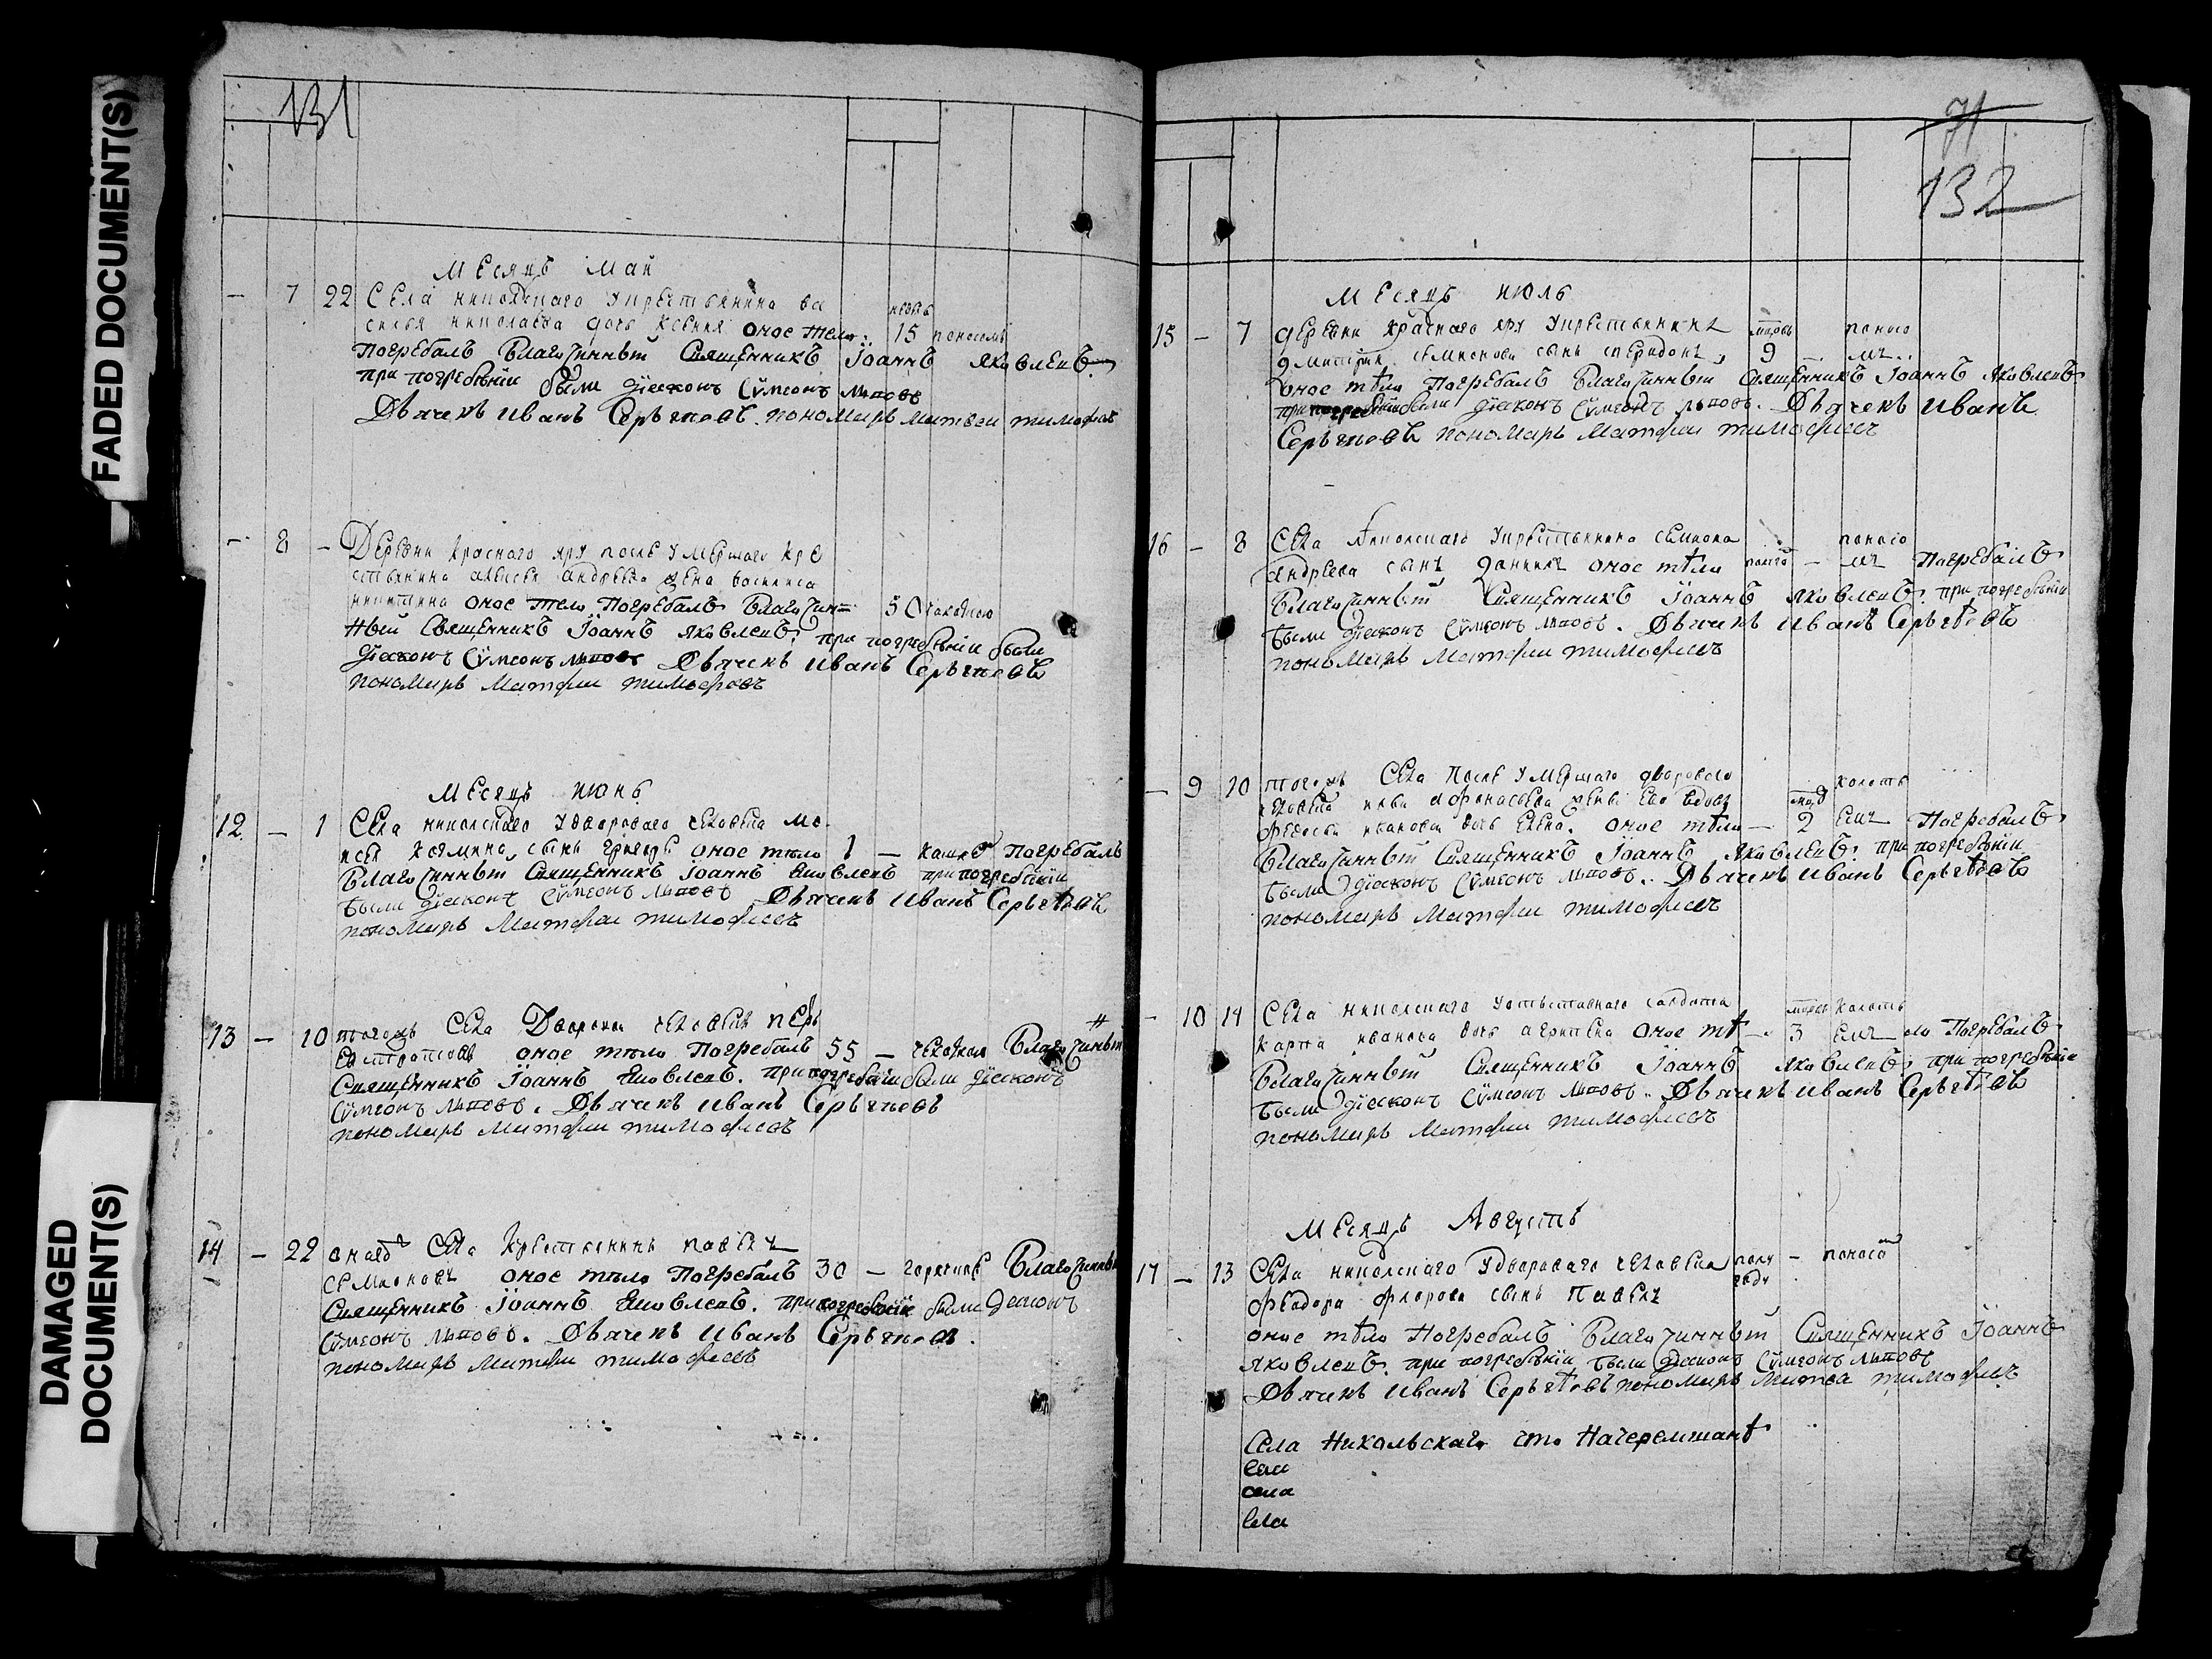 FADED DOCUMENT(S)
DAMAGED DOCUMENT(S)
131
Месяцъ Май
— 7 22 Села никольскаго У крестьянина ва
силья николаева дочь Ксения оное тело 15 поносомъ
Погребалъ Благочинный Священникъ Iоаннъ Яковлевъ
при погребѣнiи были дiаконъ Сѵмеонъ
Дьячекъ Иванъ Сергѣевъ. пономарь матвеи тимофеевъ
— 8 — Деревни Красного яру после умершаго кре
стьянина алексея андреева жена василиса
никитина оное тело Погребалъ Благочин= 5 чахоткою
ный Священникъ Iоаннъ Яковлевъ. при погребѣнiи были
дiаконъ Сѵмеонъ Дьячекъ Иванъ Сергѣевъ
пономарь Матфеи тимофеевъ
Месяцъ июнь
12 — 1 Села никольскаго У двороваго человека мо
исея козмина сынъ григорей оное тѣло 1 — кашлѣ Погребалъ
Благочинный Священникъ Iоаннъ Яковлевъ при погребѣнiи
были дiаконъ Сѵмеонъ Дьячекъ Иванъ Сергѣевъ
пономарь Матфеи тимофеевъ
13 — 10 тогожъ Села Дворовои человекъ петръ
оное тѣло Погребалъ 55 — чехоткою Благочинный
Священникъ Iоаннъ Яковлевъ. при погребѣнiи были дiаконъ
Сѵмеонъ Дьячекъ Иванъ Сергѣевъ
пономарь Матфеи тимофеевъ
14 — 22 онагожъ Села Крестьянинъ павелъ
семионовъ оное тѣло Погребалъ 30 — горячкой Благочинный
Священникъ Iоаннъ Яковлевъ. при погребѣнiи были Дiаконъ
Сѵмеонъ Дьячекъ Иванъ Сергѣевъ.
пономарь Матфеи тимофеевъ
71
132
Месяцъ июль
15 — 7 деревни Красного яру У крестьянина поносо
дмитрия семионова сынъ спиридонъ 9 — мъ
оное тѣло Погребалъ Благочинный Священникъ Iоаннъ Яковлевъ
при погребѣнiи были дiаконъ Сѵмеонъ Дьячекъ Иванъ
Сергѣевъ пономарь Матфеи тимофеевъ
16 — 8 Села Никольскаго У крестьянина семиона поносо
андреева сынъ даниилъ оное тѣло — мъ Погребалъ
Благочинный Священникъ Iоаннъ Яковлевъ. при погребѣнiи
были дiаконъ Сѵмеонъ Дьячекъ Иванъ Сергѣевъ
пономарь Матфеи тимофеевъ
— 9 10 тогожъ Села После умершаго двороваго колоть
человека афонасьева жены ево вдовы
Федосьи ивановои дочь Елена. оное тѣло — 2 емъ Погребалъ
Благочинный Священникъ Iоаннъ Яковлевъ. при погребѣнiи
были дiаконъ Сѵмеонъ Дьячекъ Иванъ Сергѣевъ
пономарь Матфеи тимофеевъ
— 10 14 Села никольскаго У отставнаго солдата колоть
карпа иванова дочь агрипена оное тѣ— 3 емъ ло Погребалъ
Благочинный Священникъ Iоаннъ Яковлевъ. при погребѣнiи
были дiаконъ Сѵмеонъ Дьячекъ Иванъ Сергѣевъ
пономарь Матфеи тимофеевъ
Месяцъ Августъ
17 — 13 Села никольскаго У двороваго человека полу — поносо
Феодора флорова сынъ Павелъ году
оное тѣло Погребалъ Благочинный Священникъ Iоаннъ
Яковлевъ. при погребѣнiи были дiаконъ Сѵмеонъ
Дьячекъ Иванъ Сергѣевъ пономарь Матвеи тимофеевъ
Села Никольскаго что Начеремшанѣ
села
села
села